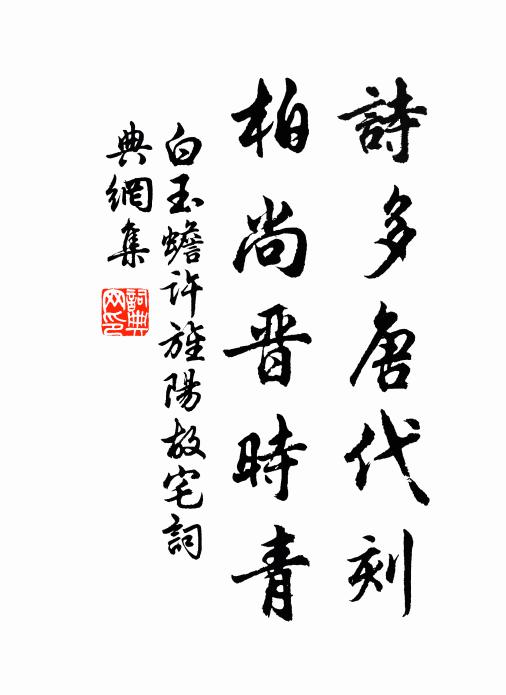 詩多唐代刻
柏尚晋時青
白玉蟾許旌陽故宅詞
典網集
詞典网印